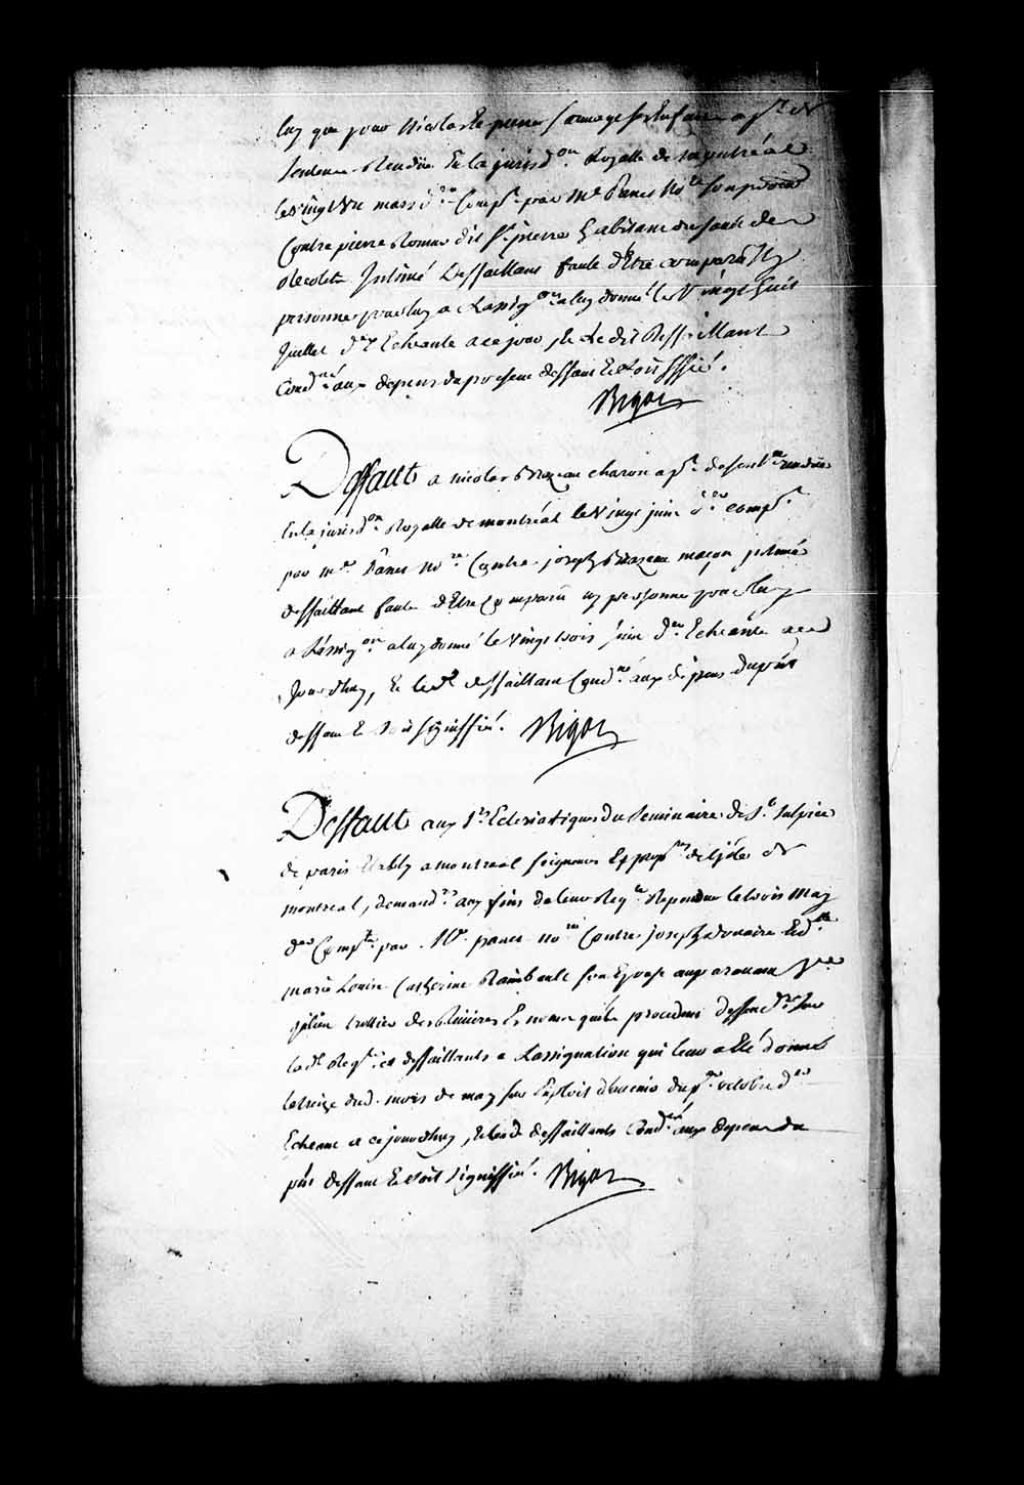 luy que pour Nicolas et pierre sauvage ses Enfans ap.t de
sentence Rendüe En la jurisd.on Royalle de montréal
le vingt mars d.er Comp.t par M.e Panet No.re
Contre pierre Romme dit S.t pierre habitant du sault de
Recolet Intimé Deffaillant faute d'Etre comparu Ny
personne pour luy a L'assig.on a luy donnée le Vingt huit
Juillet d.er Echeante a ce jour, Et Ledit Deffaillant
Cond.né aux depens du present deffaut Et soit Siffié.
Bigot
Deffaut a nicolas Brazeau charon ap.t de sent.ce rendüe
En la jurisd.on Royalle de montréal le Vingt juin d.er comp.t
par m.e Panet no.re Contre joseph Brazeau maçon intimé
deffaillant faute d'Etre Comparu ny personne pour luy
a L'assig.on a luy donnée le Vingt trois juin d.er Echeante a ce
Jourdhuy, Et led.t deffaillant Cond.né aux depens du p̃nt
deffaut Et soit signiffié. Bigot
Deffaut aux S.rs Eclesiastiques du Seminaire de S.t Sulpice
de paris Etably a montreal seigneurs Et prop.res de l'isle de
montreal, demand.rs aux fins de leur Req.te Repondue le trois May
d.er Comp.t par M.e panet no.re Contre joseph douaire Et d.lle
marie Louise Catherine Raimbault son Epouse auparavant v.ve
julien trottier des Rivieres Es noms quils procedent Deffend.rs sur
lad.te Req.te et deffaillants a L'assignation qui leur a Eté donnée
le treize dud. mois de may par Exploit du p.er octobre d.er
Echeant a ce jourdhuy, Et lesd. deffaillants Cond.nés aux depens du
p̃nt deffaut Et soit signiffié. Bigot